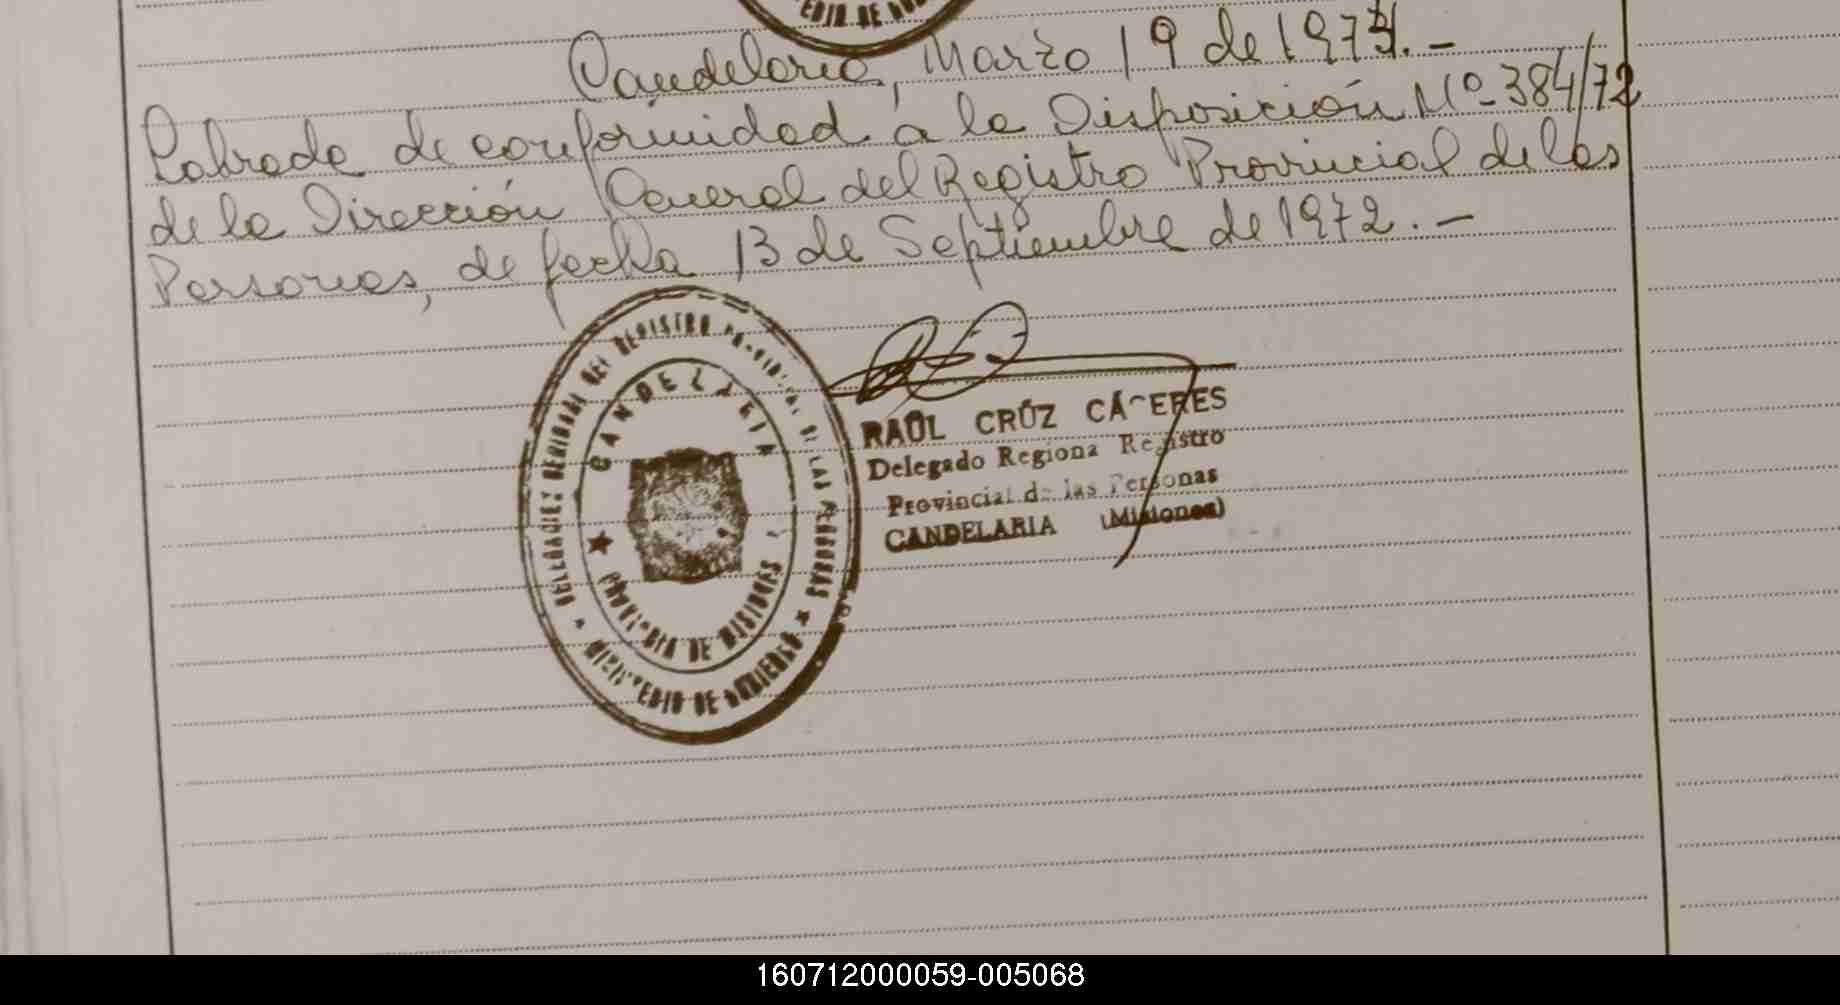 Candelaria, Marzo 19 de 197
Labrada de conformidad a la Disposición Nº 384/72
de la Dirección General del Registro Provincial de las
Personas, de fecha 13 de Septiembre de 1972.-
DELEGACION REGIONAL DEL REGISTRO PROVINCIAL DE LAS PERSONAS
CANDELARIA
PROVINCIA DE MISIONES
MINISTERIO DE GOBIERNO
RAÚL CRÚZ CÁCERES
Delegado Regional Registro
Provincial de las Personas
CANDELARIA (Misiones)
160712000059-005068